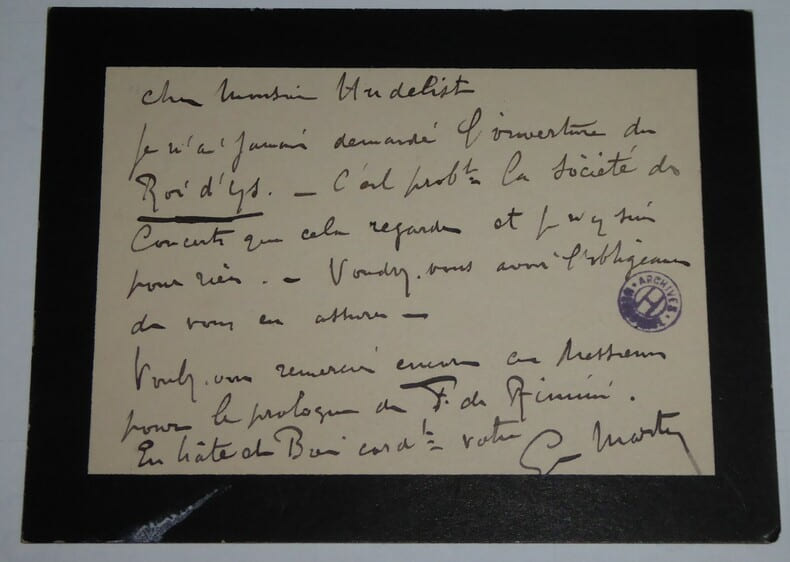 Cher Monsieur Hudelist
Je n'ai jamais demandé l'ouverture du
Roi d'Ys. — C'est probt la Société des
Concerts que cela regarde et je n'y suis
pour rien. — Voudrez-vous avoir l'obligeance
de vous en assurer —
Voulez-vous remercier encore ces Messieurs
pour le prologue de F. de Rimini.
En hâte et Bien cordt votre
G. Marty
ARCHIVES
H